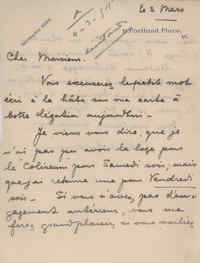 le 2 Mars
Portland Place,
W.
Cher Monsieur.
Vous excuserez le petit mot
écri à la hâte sur ma carte à
votre légation aujourd'hui -
Je viens vous dire, que je
n'ai pas pu avoir la loge pour
le Coliseum pour Samedi soir, mais
que j'ai retenu une pour Vendredi
soir - Si vous n'avez, pas d'en-
gagement antérieur, vous me
ferez grand plaisir, si vous vouliez